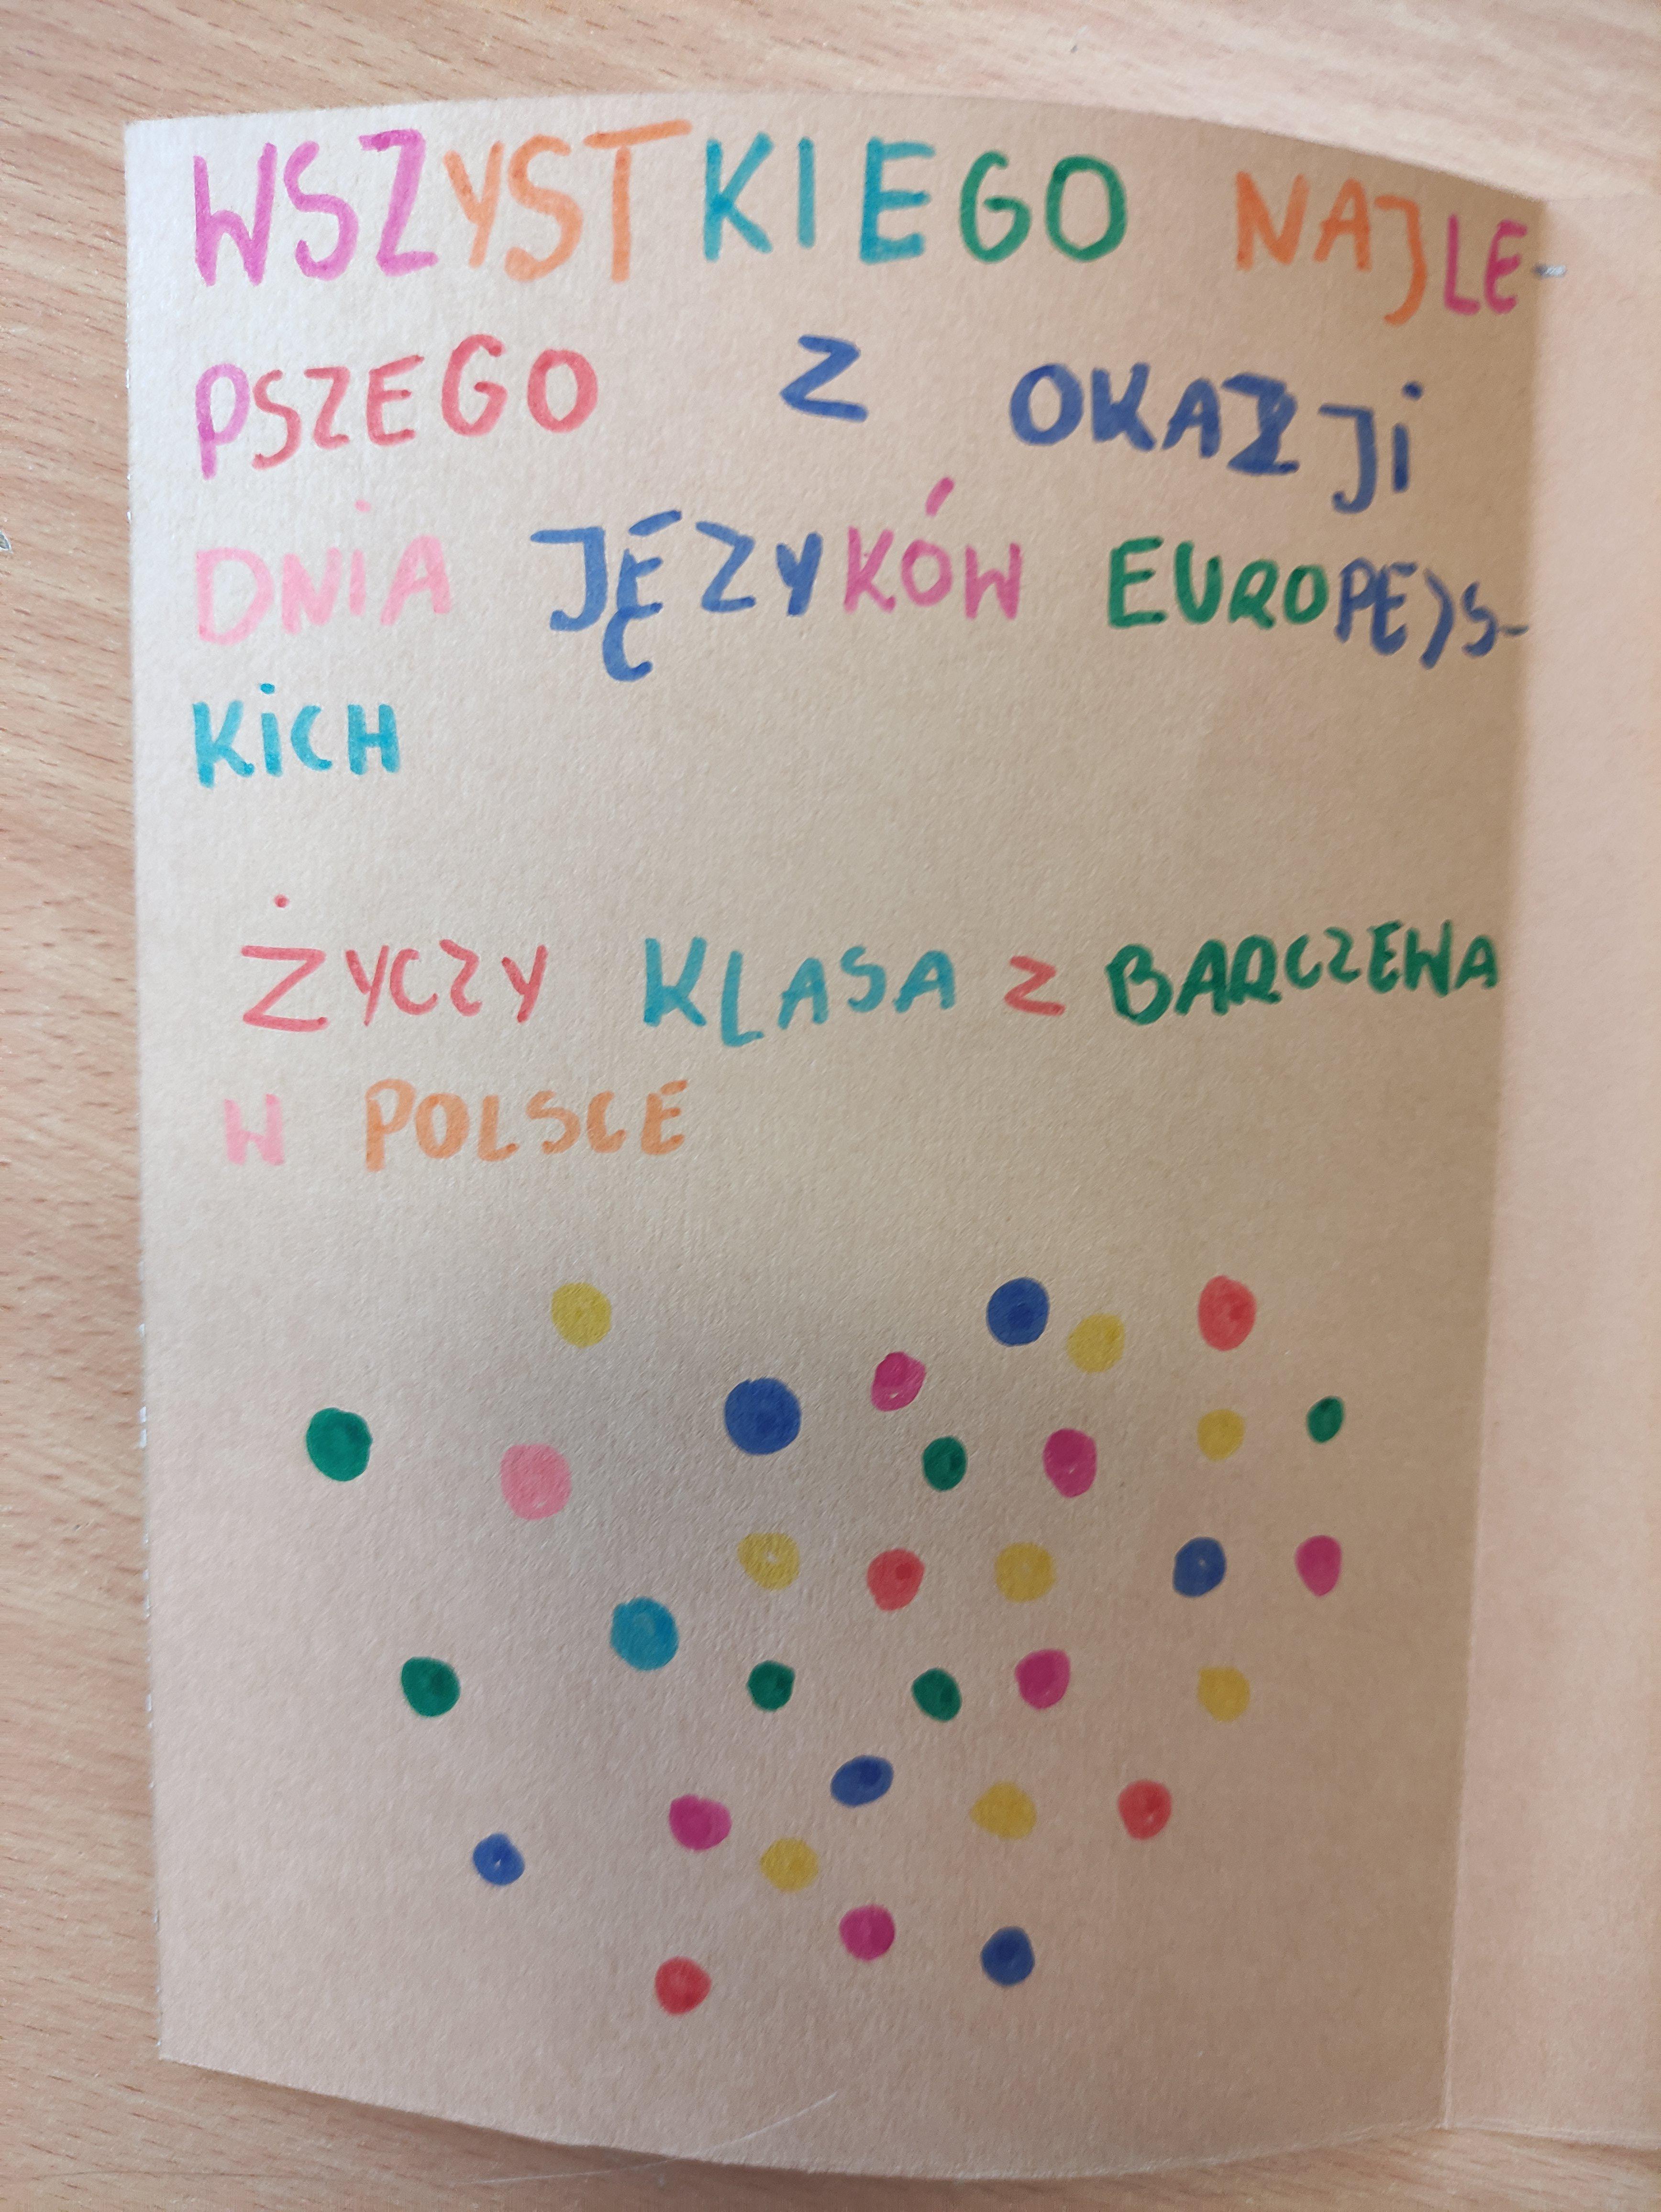 WSZYSTKIEGO NAJLE-
PSZEGO Z OKAZJI
DNIA JĘZYKÓW EUROPEJS-
KICH
ŻYCZY KLASA Z BARCZEWA
W POLSCE